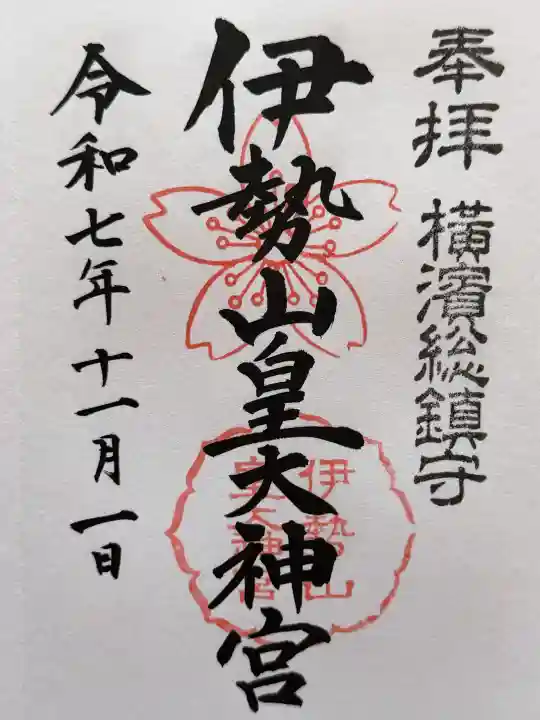 奉拝 横濱総鎮守
伊勢山皇大神宮
伊勢山
皇大神宮
令和七年十一月一日